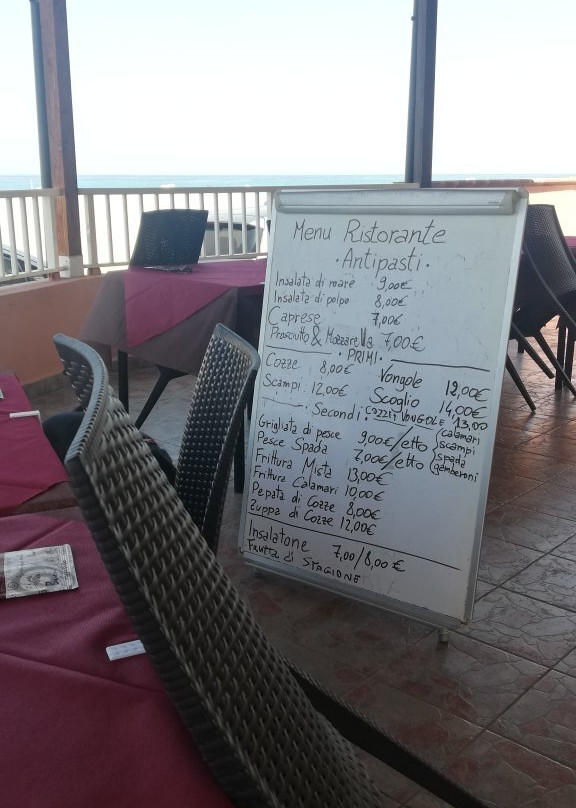 Menu Ristorante
·Antipasti·
Insalata di mare 9,00€
Insalata di polpo 8,00€
Caprese 7,00€
Prosciutto & Mozzarella 7,00€
·PRIMI·
Cozze 8,00€ Vongole 12,00€
Scampi 12,00€ Scoglio 14,00€
COZZE E VONGOLE 13,00
·Secondi·
Grigliata di pesce 9,00€/etto (calamari
scampi
spada
gamberoni
Pesce Spada 7,00€/etto
Frittura Mista 13,00€
Frittura Calamari 10,00€
Pepata di Cozze 8,00€
Zuppa di Cozze 12,00€
Insalatone 7,00/8,00€
Frutta di STAGIONE